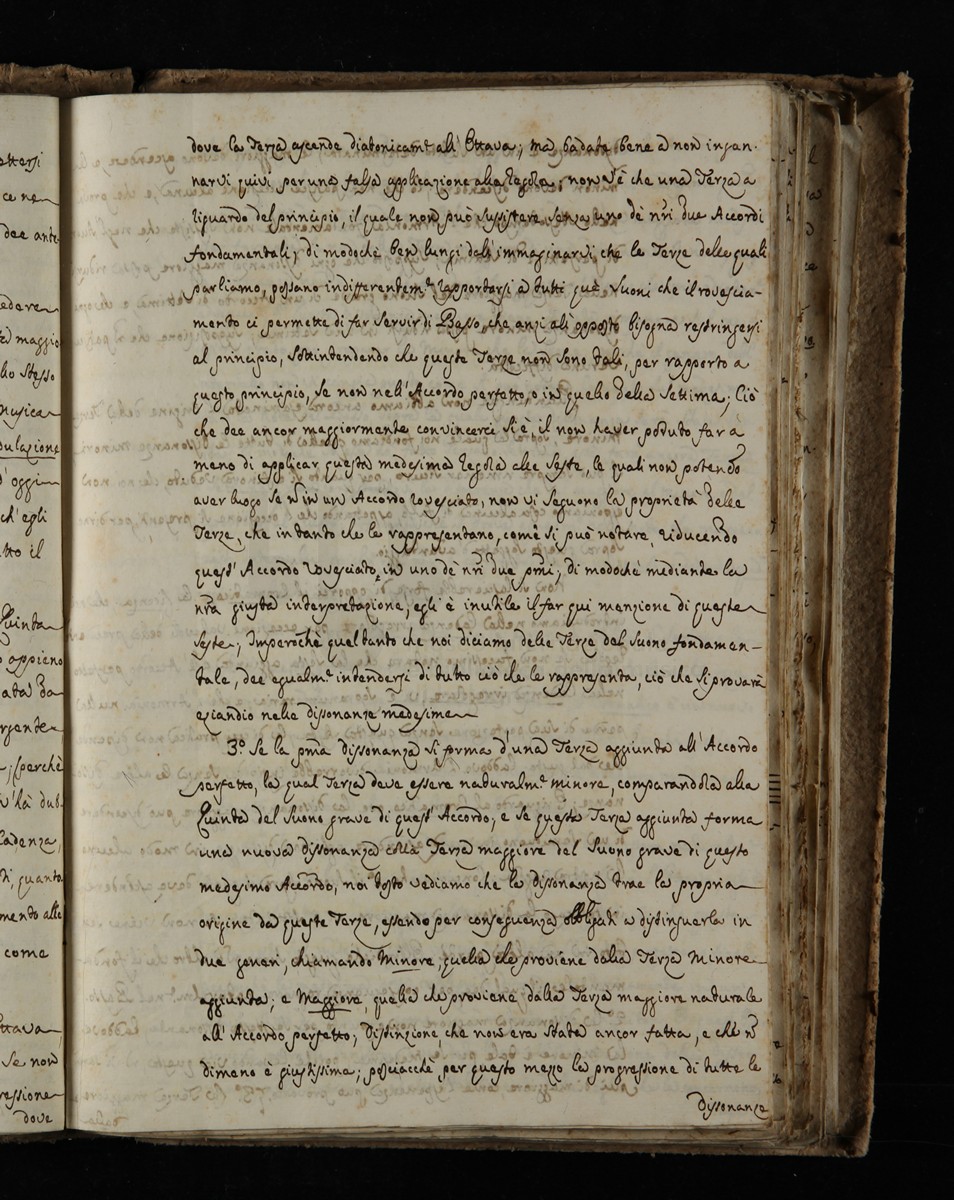 dove la Terza ascende diatonicam.te all' Ottava; mà badate bene à non ingan-
narvi quivi per una falsa applicazione alla regola; non v'è che una Terza a
riguardo del principio, il quale non può sussistere senza uno de' nri due Accordi
fondamentali; di modochè ben lungi dall' immaginarvi, che le Terze delle quali
parliamo, possano indifferentem.te rapportarsi à tutti què Suoni che il rovescia-
mento ci permette di far servir di Basso, che anzi all' opposto bisogna restringersi
al principio, sottintendendo che queste Terze non sono tali, per rapporto a
questo principio, se non nell' Accordo perfetto, o in quello della Settima; Ciò
che dee ancor maggiormente convincerci si è, il non haver potuto far a
meno di applicar questa medesima regola alle Seste, le quali non potendo
aver luogo se ñ in un Accordo rovesciato, non vi seguono la proprietà delle
Terze, che intanto che le rappresentano, come si può notare, riducendo
quest' Accordo rovesciato in uno de' nri due pmi; di modochè mediante la
nra giusta interpretazione, egli è inutile il far qui menzione di queste
Seste; Imperochè quel tanto che noi diciamo delle Terze del Suono fondamen-
tale, dee egualm.te intendersi di tutto ciò che le rappresenta, ciò che si provarà
eziandio nelle dissonanze medesime
3.° Se la pma dissonanza si forma d'una Terza aggiunta all' Accordo
perfetto, la qual Terza deve essere naturalm.te minore, comparandola alla
Quinta del Suono grave di quest' Accordo; e se questa Terza aggiunta forma
una nuova dissonanza colla Terza maggiore del Suono grave di questo
medesimo Accordo, noi tosto vediamo che la dissonanza trae la propria
origine da queste Terze, essendo per conseguenza obbligati a distinguerla in
due generi, chiamando Minore, quella che proviene dalla Terza minore
aggiunta; e Maggiore, quella che proviene dalla Terza maggiore naturale
all' Accordo perfetto; distinzione, che non era stata ancor fatta, e che ñ
dimeno è giustissima; posciacchè per questo mezzo la progressione di tutte le
dissonanze